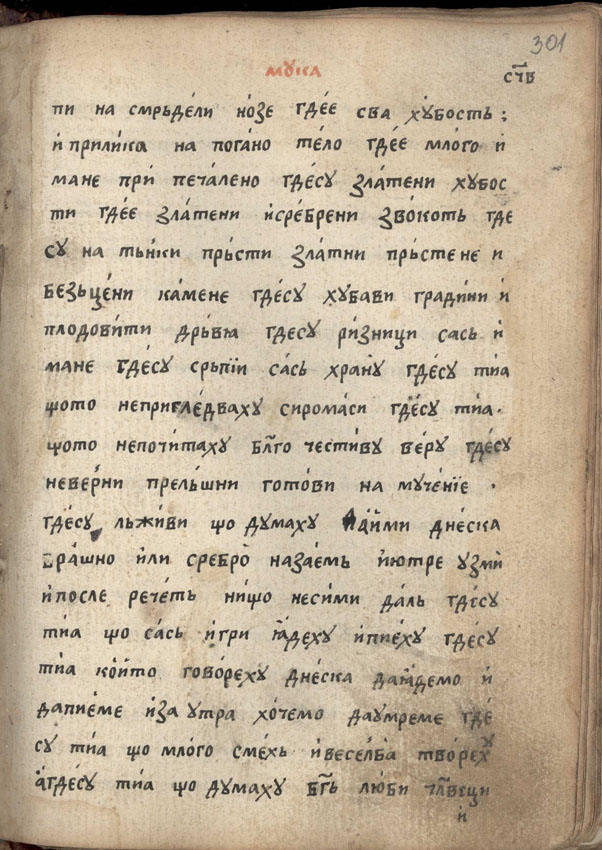 301
мꙋка
сч҃в
пи на смрьдѐли но́зе где́е сва хꙋ́бость ;
и҆ прили́ка на пога́но те́ло где́е мло́го и҆
мане при́ печа́лено где́сꙋ зла́тени хꙋбос
ти где́е зла́тени и҆сре́брени зво́коть где
сꙋ на ть́нки прь́сти зла́тни прь́стене и
безьце́ни ка́мене где́сꙋ хꙋ́бави гради́ни и҆
плодови́ти дрь́вꙗ где́сꙋ ри́зници сась и҆
мане где́сꙋ срьпі́и са́сь хра́нꙋ где́сꙋ ти́а
щото неприглѐдвахꙋ сирома́си где́сꙋ ти́а ·
щото непочи́тахꙋ бл҃го че́стивꙋ ве́рꙋ где́сꙋ
неве́рни прель́щни гото́ви на мꙋче́нїе ·
где́сꙋ льжи́ви що дꙋ́махꙋ да́йми дне́ска
бра́шно и҆ли сребро̀ наза́емь и҆ютре ꙋзми̏
и҆после рече́ть ни́що не́сими даль где́сꙋ
ти́а що са́сь и҆гри ꙗ҆́дехꙋ и҆пи́ехꙋ где́сꙋ
ти́а ко́йто гово́рехꙋ дне́ска даꙗ́демо и҆
дапие́ме и҆за ꙋтра хо́чемо даꙋмреме где́
сꙋ ти́а що мло́го сме́хь и҆весе́лба тво́рехꙋ
а҆где́сꙋ ти́а що дꙋ́махꙋ бг҃ь лю́би чл҃веци
и